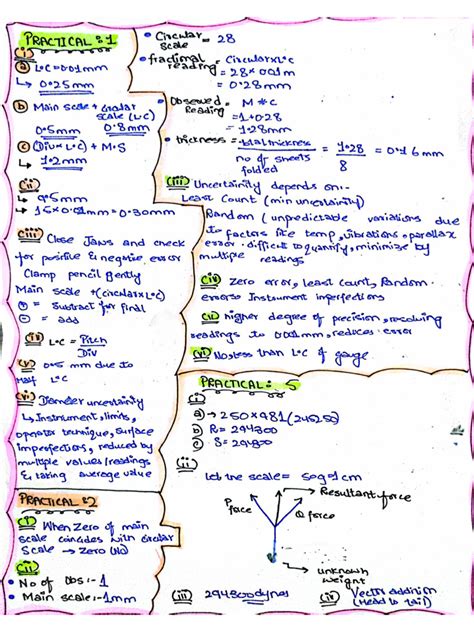 PRACTICAL :1
(i)
(a) L.C=0.01mm
↳ 0.25mm
(b) Main scale + Circular
scale (L.C)
0.5mm 0.8mm
(c) (Div x L.C) + M.S
↳ 1.2mm
(ii)
↳ 9.5mm
↳ 15x0.01mm=0.30mm
(iii) Close Jaws and check
for positive & negative error
Clamp pencil gently
Main scale +(circularxL.C)
(+) = Subtract for final
(-) = add
(iv) L.C = Pitch/Div
(v) 0.5 mm due to
Half L.C
(vi) Diameter uncertainity
↳ Instrument, limits,
operator technique, Surface
imperfections, reduced by
multiple values/readings
& taking average value
PRACTICAL :2
(i) When Zero of main
scale coincides with Circular
Scale → Zero (No)
(ii)
• No of Obs :- 1
• Main scale :- 1mm
• Circular Scale = 28
• fractional reading = CircularxL.C
= 28x0.01m
= 0.28mm
• Observed Reading = M + C
= 1+0.28
= 1.28mm
• thickness = total thickness / no of sheets folded = 1.28/8 = 0.16mm
(iii) Uncertainity depends on:-
Least Count (min uncertainity)
Random (unpredictable variations due
to factors like temp, vibrations, parallax
error. difficult to quantify, minimize by
multiple readings
(iv) Zero error, least count, Random
errors Instrument imperfections
(v) higher degree of precision, resolving
readings to 0.01mm, reduces error
(vi) No, less than L.C of gauge
PRACTICAL: 5
(i)
(a) → 250x981 (245250)
(b) R= 294300
(c) S= 294300
(ii)
let the scale= 50g=1cm
Resultant force
P force
Q force
unknown
weight
(iii) 294300dynes
(iv) Vector addition
(Head to tail)